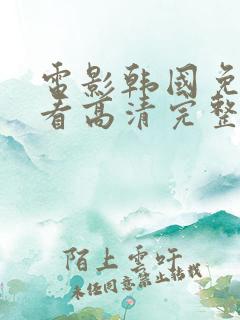 雷影韩国免
看高清完整
陌上雲吁
未经同意禁止转载